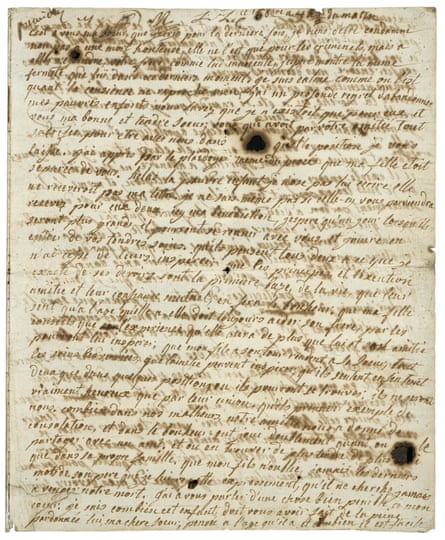 c'est a vous, ma soeur, que j'ecris pour la derniere fois, je viens d'etre condannée
non pas a une mort honteuse, elle ne l'est que pour les criminels, mais a
aller rejoindre votre frere, comme lui innocente, j'espere montrer la même
fermeté que lui dans ces derniers moments. je suis calme comme on l'est
quand la conscience ne reproche rien, j'ai un profond regret d'abandonner
mes pauvres enfants; vous savez que je n'existois que pour eux, et
vous, ma bonne et tendre soeur, vous qui avez par votre amitié tout
sacrifié pour être avec nous, dans quelle position je vous
laisse! j'ai appris par le plaidoyer même du procès que ma fille étoit
separée de vous. hélas! la pauvre enfant, je n'ose pas lui ecrire, elle
ne recevroit pas ma lettre, je ne sais même pas si celle-ci vous parviendra,
recevez pour eux deux ici, ma benediction. j'espere qu'un jour, lorsqu'ils
seront plus grands, ils pourront se reunir avec vous, et jouir en
entier de vos tendres soins. qu'ils pensent tous deux a ce que je
n'ai cessé de leurs inspirer, que les principes, et l'execution
exacte de ses devoirs sont la premiere base de la vie, que leur
amitié et leur confiance mutuelle, en fera le bonheur, que ma fille
sente qu'a l'age qu'elle a, elle doit toujours aider son frere par les
conseils que l'experience qu'elle aura de plus que lui et son amitié
pourront lui inspirer. que mon fils a son tour, rende a sa soeur, tous
les soins, les services, que l'amitié peuvent inspirer, qu'ils sentent enfin tous
deux que dans quelques positions ou ils pourront se trouver, ils ne seront
vraiment heureux que par leur union, qu'ils prennent exemple de
nous, combien dans nos malheurs, notre amitié nous a donné de
consolation, et dans le bonheur on jouit doublement quand on peut le
partager avec un ami, et ou en trouver de plus tendre de plus cher
que dans sa propre famille, que mon fils n'oublie jamais les derniers
mots de son pere, que je lui repette expressement, qu'il ne cherche jamais
a venger notre mort. j'ai a vous parler d'une chose bien penible a mon
coeur, je sais combien cet enfant, doit vous avoir fait de la peine,
pardonnez lui, ma chere soeur, pensez a l'age qu'il a, et combien il est facile